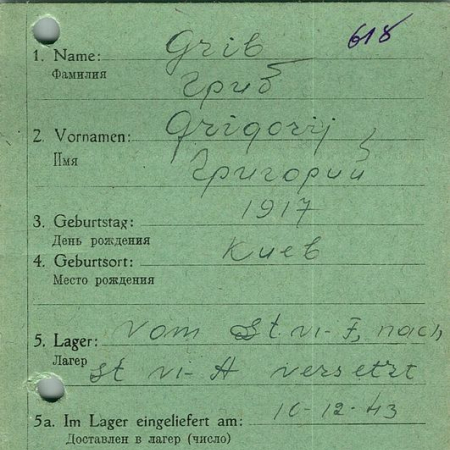 618
1. Name: Grib
Фамилия Гриб
2. Vornamen: Grigorij
Имя Григорий
3. Geburtstag: 1917
День рождения
4. Geburtsort: Киев
Место рождения
5. Lager: vom St VI-F, nach
Лагер St VI-A versetzt
5a. Im Lager eingeliefert am: 10-12-43
Доставлен в лагер (число)